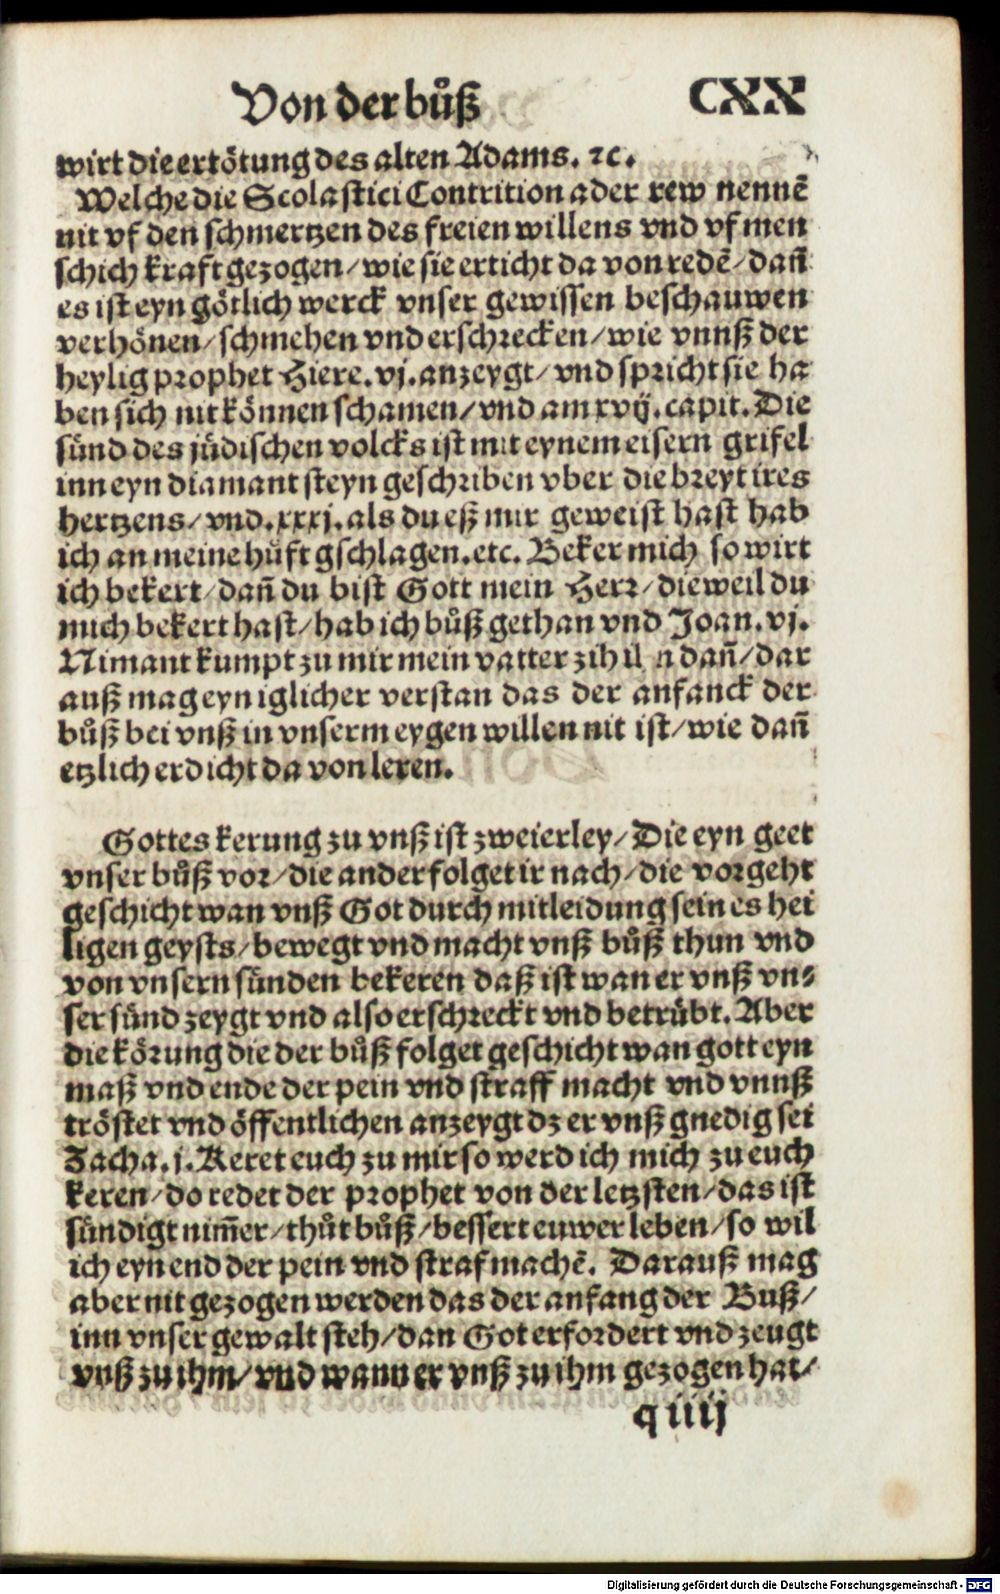 Von der bůß CXX
wirt die ertötung des alten Adams. ⁊c.
Welche die Scolastici Contrition ader rew nennē
nit vf den schmertzen des freien willens vnd vf men
schich kraft gezogen/wie sie erticht da von redē/dañ
es ist eyn götlich werck vnser gewissen beschauwen
verhönen/schmehen vnd erschrecken/wie vnnß der
heylig prophet Hiere.vj.anzeygt/vnd spricht sie ha
ben sich nit können schamen/vnd am xvij.capit.Die
sünd des jüdischen volcks ist mit eynem eisern grifel
inn eyn diamant steyn geschriben vber die breyt ires
hertzens/vnd.xxxj.als du eß mir geweist hast hab
ich an meine hüft gschlagen.etc. Beker mich so wirt
ich bekert/dañ du bist Gott mein Herr/die weil du
mich bekert hast/hab ich bůß gethan vnd Joan.vj.
Nimant kumpt zu mir mein vatter zih dañ/dar
auß mag eyn iglicher verstan das der anfanck der
bůß bei vnß in vnserm eygen willen nit ist/wie dañ
etzlich erdicht da von leren.
Gottes kerung zu vnß ist zweierley/Die eyn geet
vnser bůß vor/die ander folget ir nach/die vorgeht
geschicht wan vnß Got durch mitleidung seines hei
ligen geysts/bewegt vnd macht vnß bůß thun vnd
von vnsern sünden bekeren daß ist wan er vnß vn⸗
ser sünd zeygt vnd also erschreckt vnd betrübt. Aber
die körung die der bůß folget geschicht wan gott eyn
maß vnd ende der pein vnd straff macht vnd vnnß
tröstet vnd öffentlichen anzeygt dz er vnß gnedig sei
Zacha.j.Keret euch zu mir so werd ich mich zu euch
keren/do redet der prophet von der letzsten/das ist
sündigt nim̄er/thůt bůß/bessert euwer leben/so wil
ich eyn end der pein vnd straf machē. Darauß mag
aber nit gezogen werden das der anfang der Buß/
inn vnser gewalt steh/dan Got erfordert vnd zeugt
vnß zu ihm/vnd wann er vnß zu ihm gezogen hat/
q iiij
Digitalisierung gefördert durch die Deutsche Forschungsgemeinschaft - DFG